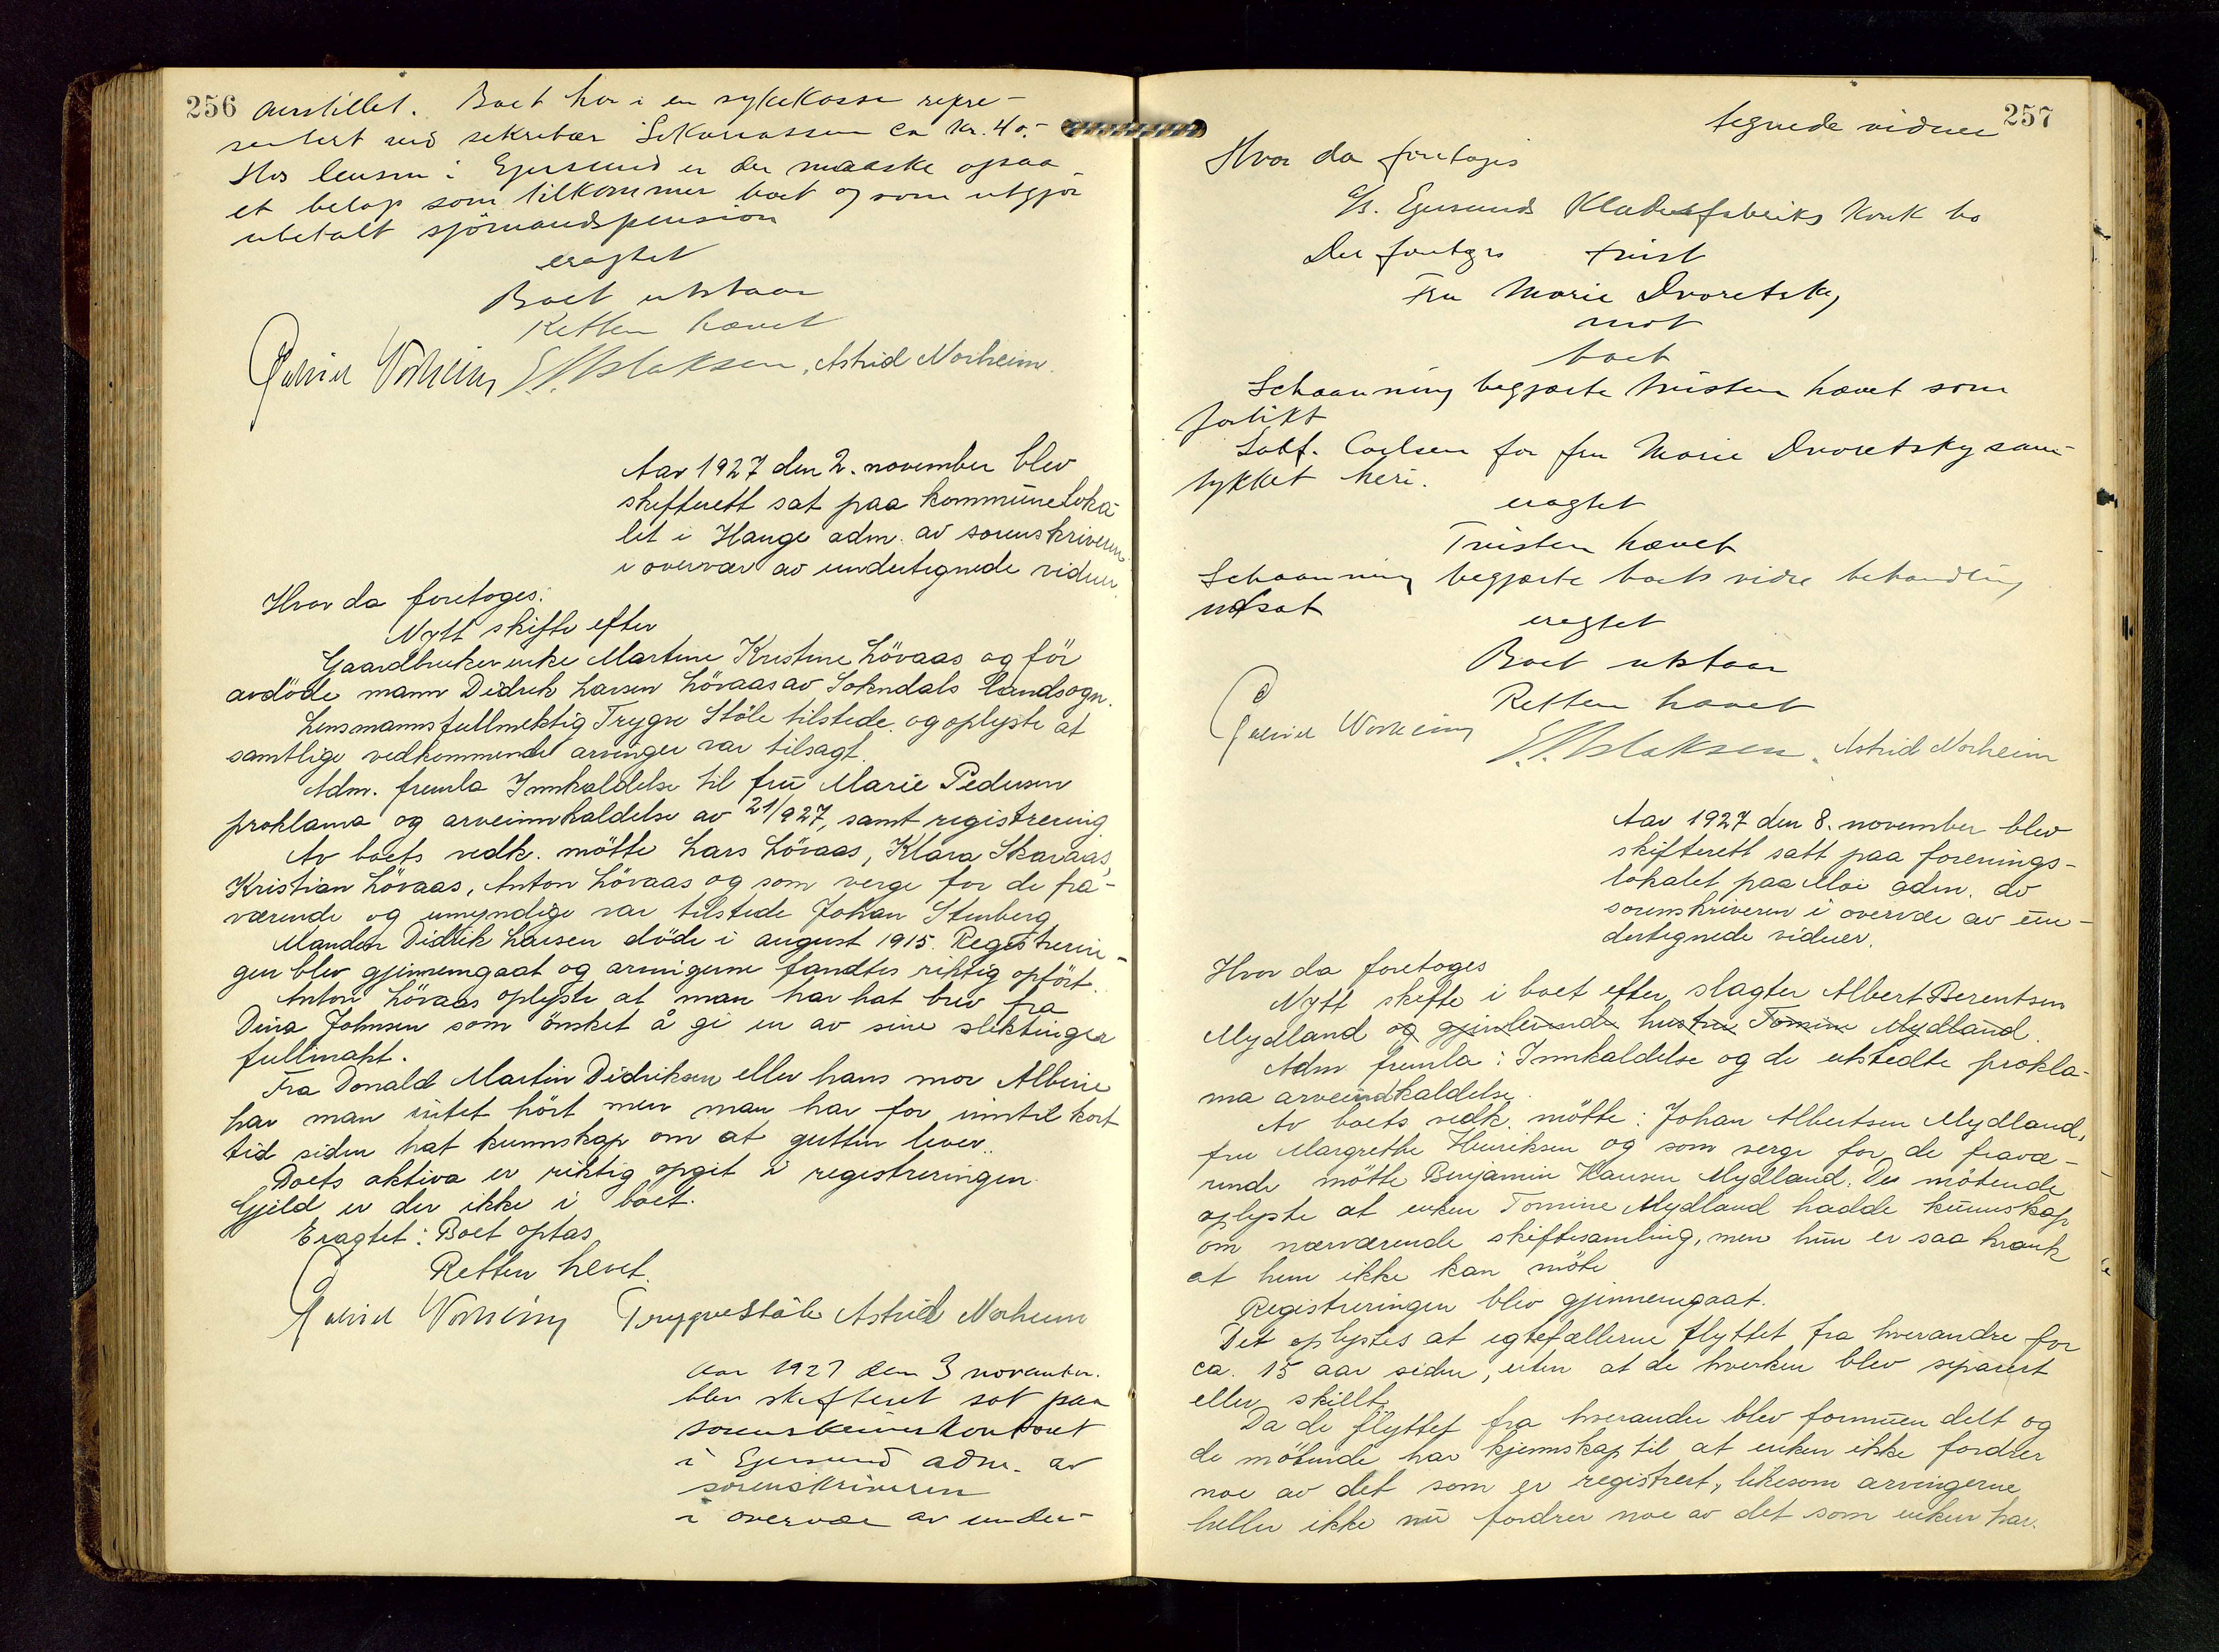 256
anstillet. Boet har i en sykekasse repre-
sentert ved sekretær ca kr. 40.-
Hos lensm i Egersund er der maaske ogsaa
et beløp som tilkommer boet og som utgjør
ubetalt sjömandspension
eragtet
Boet utstaar
Retten hævet
Astrid Norheim.
Aar 1927 den 2. november blev
skifterett sat paa kommuneloka-
let i Hauge adm. av sorenskriveren
i overvær av undertegnede vidner.
Hvor da foretoges:
Nytt skifte efter
Gaardbrukerenke Martine Kristine Lövaas og för
avdöde mann Didrik Larsen Lövaas av Sokndals landsogn.
Lensmannsfullmektig Trygve Stöle tilstede og oplyste at
samtlige vedkommende arvinger var tilsagt.
Adm. fremla Innkaldelse til fru Marie Pedersen
proklama og arveinnkaldelse av 21/927, samt registrering
Av boets vedk. mötte Lars Lövaas, Klara Skaraas,
Kristian Lövaas, Anton Lövaas og som verge for de fra-
værende og umyndige var tilstede Johan Stenberg
Manden Didrik Larsen döde i august 1915. Registrerin-
gen blev gjennemgaat og arvingerne fandtes riktig opfört.
Anton Lövaas oplyste at man har hat brev fra
Dina Johnsen som önsket å gi en av sine slektinger
fullmakt.
Fra Donald Martin Didriksen eller hans mor Albine
har man intet hört men man har for inntil kort
tid siden hat kunnskap om at gutten lever.
Boets aktiva er riktig opgit i registreringen.
Gjeld er der ikke i boet.
Eragtet: Boet optas
Retten hevet.
Trygve Stöle Astrid Norheim
Aar 1927 den 3 november.
blev skifteret sat paa
sorenskriverkontoret
i Egersund adm. av
sorenskriveren
i overvær av under-
257
tegnede vidner
Hvor da foretoges
A/S. Egersunds Klædesfabriks konk bo
Der foretoges tvist
Fru Marie Dvoretsky
mot
boet
Schaanning begjærte tvisten hævet som
forlikt
Sakf. Carlsen for fru Marie Dvoretsky sam-
tykket heri.
eragtet
Tvisten hævet
Schaanning begjærte boets videre behandling
udsat
eragtet
Boet utstaar
Retten hævet
Astrid Norheim
Aar 1927 den 8. november blev
skifterett satt paa forenings-
lokalet paa Moi adm. av
sorenskriveren i overvær av un-
dertegnede vidner.
Hvor da foretoges
Nytt skifte i boet efter slagter Albert Berentsen
Mydland og gjenlevende hustru Tomine Mydland.
Adm fremla: Innkaldelse og de utstedte prokla-
ma arveindkaldelse.
Av boets vedk. mötte: Johan Albertsen Mydland,
fru Margrethe Henriksen og som verge for de fravæ-
rende mötte Benjamin Hansen Mydland. De mötende
oplyste at enken Tomine Mydland hadde kunnskap
om nærværende skiftesamling, men hun er saa krank
at hun ikke kan möte
Registreringen blev gjennemgaat.
Det oplystes at egtefællerne flyttet fra hverandre for
ca. 15 aar siden, uten at de hverken blev separert
eller skillt.
Da de flyttet fra hverandre blev formuen delt og
de mötende har kjennskap til at enken ikke fordrer
noe av det som er registrert, likesom arvingerne
heller ikke nu fordrer noe av det som enken har.